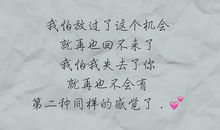 我怕放过了这个机会
就再也回不来了
我怕我失去了你
就再也不会有
第二种同样的感觉了．💕